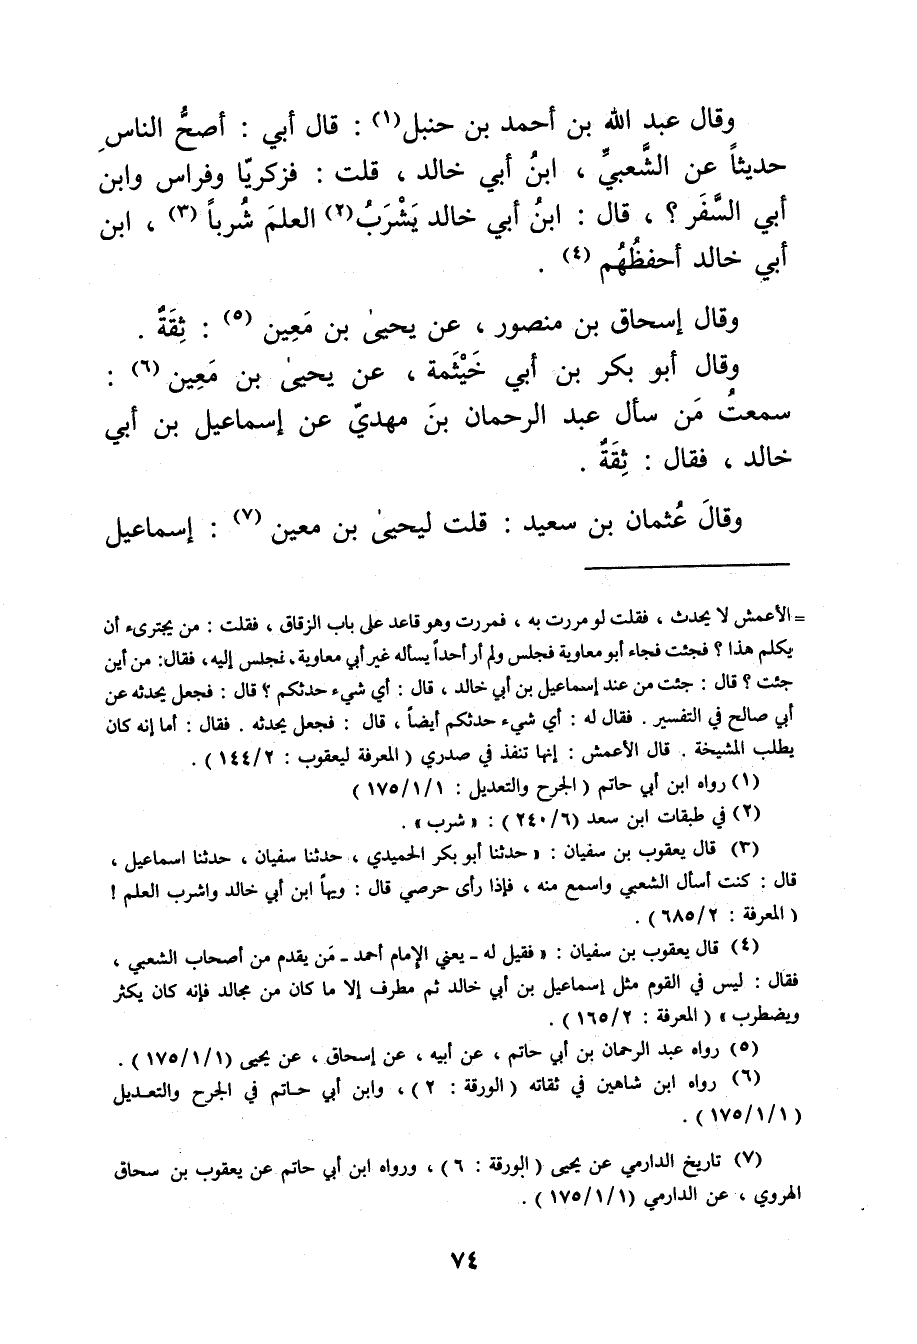 وقال عبد الله بن أحمد بن حنبل(١) : قال أبي : أصحُّ الناسِ
حديثاً عن الشَّعبيِّ ، ابنُ أبي خالد ، قلت : فزكريّا وفراس وابن
أبي السَّفَر ؟ ، قال : ابنُ أبي خالد يَشْرَبُ(٢) العلمَ شُرباً (٣) ، ابن
أبي خالد أحفظُهُم (٤) .
وقال إسحاق بن منصور ، عن يحيىٰ بن مَعِين (٥) : ثِقَةٌ .
وقال أبو بكر بن أبي خَيْثَمة ، عن يحيىٰ بن مَعِين (٦) :
سمعتُ مَن سأل عبد الرحمان بنَ مهديّ عن إسماعيل بن أبي
خالد ، فقال : ثِقَةٌ .
وقالَ عُثمان بن سعيد : قلت ليحيىٰ بن معين (٧) : إسماعيل
= الأعمش لا يحدث ، فقلت لو مررت به ، فمررت وهو قاعد على باب الزقاق ، فقلت : من يجترىء أن
يكلم هذا ؟ فجئت فجاء أبو معاوية فجلس ولم أر أحداً يسأله غير أبي معاوية ، فجلس إليه ، فقال : من أين
جئت ؟ قال : جئت من عند إسماعيل بن أبي خالد ، قال : أي شيء حدثكم ؟ قال : فجعل يحدثه عن
أبي صالح في التفسير . فقال له : أي شيء حدثكم أيضاً ، قال : فجعل يحدثه . فقال : أما إنه كان
يطلب المشيخة . قال الأعمش : إنها تنفذ في صدري ( المعرفة ليعقوب : ٢/ ١٤٤ ) .
(١) رواه ابن أبي حاتم ( الجرح والتعديل : ١/١/ ١٧٥ )
(٢) في طبقات ابن سعد (٦/ ٢٤٠ ) : « شرب » .
(٣) قال يعقوب بن سفيان : « حدثنا أبو بكر الحميدي ، حدثنا سفيان ، حدثنا اسماعيل ،
قال : كنت أسأل الشعبي واسمع منه ، فإذا رأى حرصي قال : ويهاً ابن أبي خالد واشرب العلم !
( المعرفة : ٢/ ٦٨٥) .
(٤) قال يعقوب بن سفيان : « فقيل له ـ يعني الإمام أحمد ـ مَن يقدم من أصحاب الشعبي ،
فقال : ليس في القوم مثل إسماعيل بن أبي خالد ثم مطرف إلا ما كان من مجالد فإنه كان يكثر
ويضطرب » ( المعرفة : ٢/ ١٦٥ ) .
(٥) رواه عبد الرحمان بن أبي حاتم ، عن أبيه ، عن إسحاق ، عن يحيى (١/١/ ١٧٥ ) .
(٦) رواه ابن شاهين في ثقاته ( الورقة : ٢ ) ، وابن أبي حـاتم في الجرح والتعـديل
(١/١/ ١٧٥ ) .
(٧) تاريخ الدارمي عن يحيى ( الورقة : ٦ ) ، ورواه ابن أبي حاتم عن يعقوب بن سحاق
الهروي ، عن الدارمي (١/١/ ١٧٥ ) .
٧٤